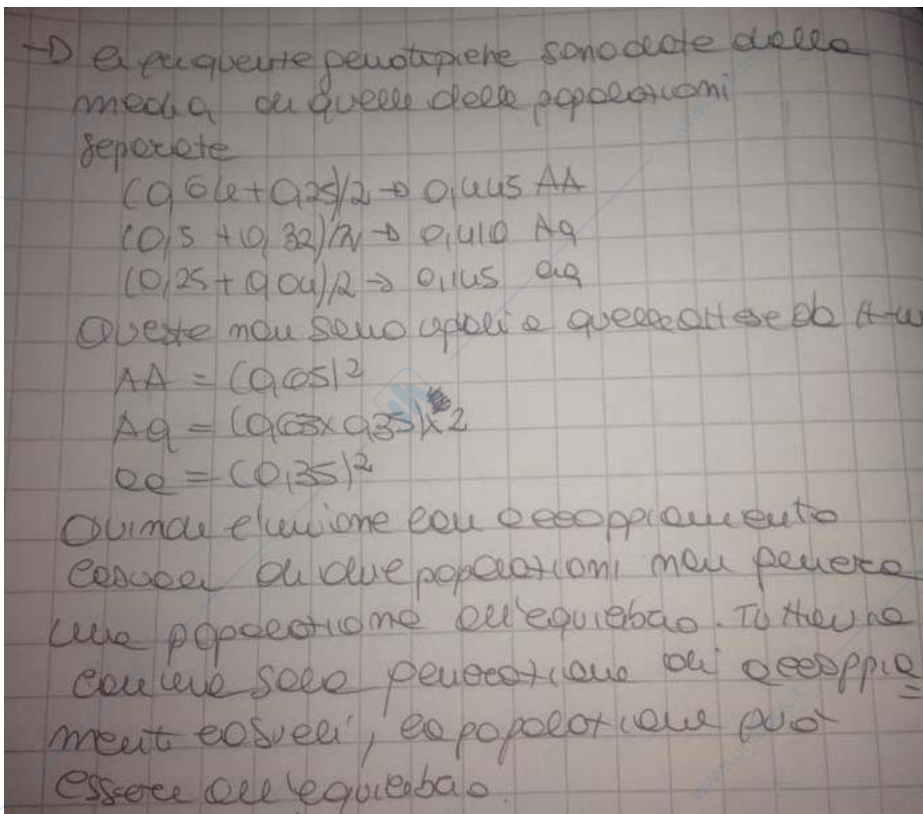 → le frequenze genotipiche sono date dalla
media di quelle delle popolazioni
separate
(0,64+0,25)/2 → 0,445 AA
(0,5 + 0,32)/2 → 0,410 Aa
(0,25+0,04)/2 → 0,145 aa
Queste non sono uguali a quelle attese da H-W
AA = (0,65)²
Aa = (0,65x0,35)x2
aa = (0,35)²
Quindi l'unione con accoppiamento
casuale di due popolazioni non genera
una popolazione all'equilibrio. Tuttavia
con una sola generazione di accoppia
menti casuali, la popolazione può
essere all'equilibrio.